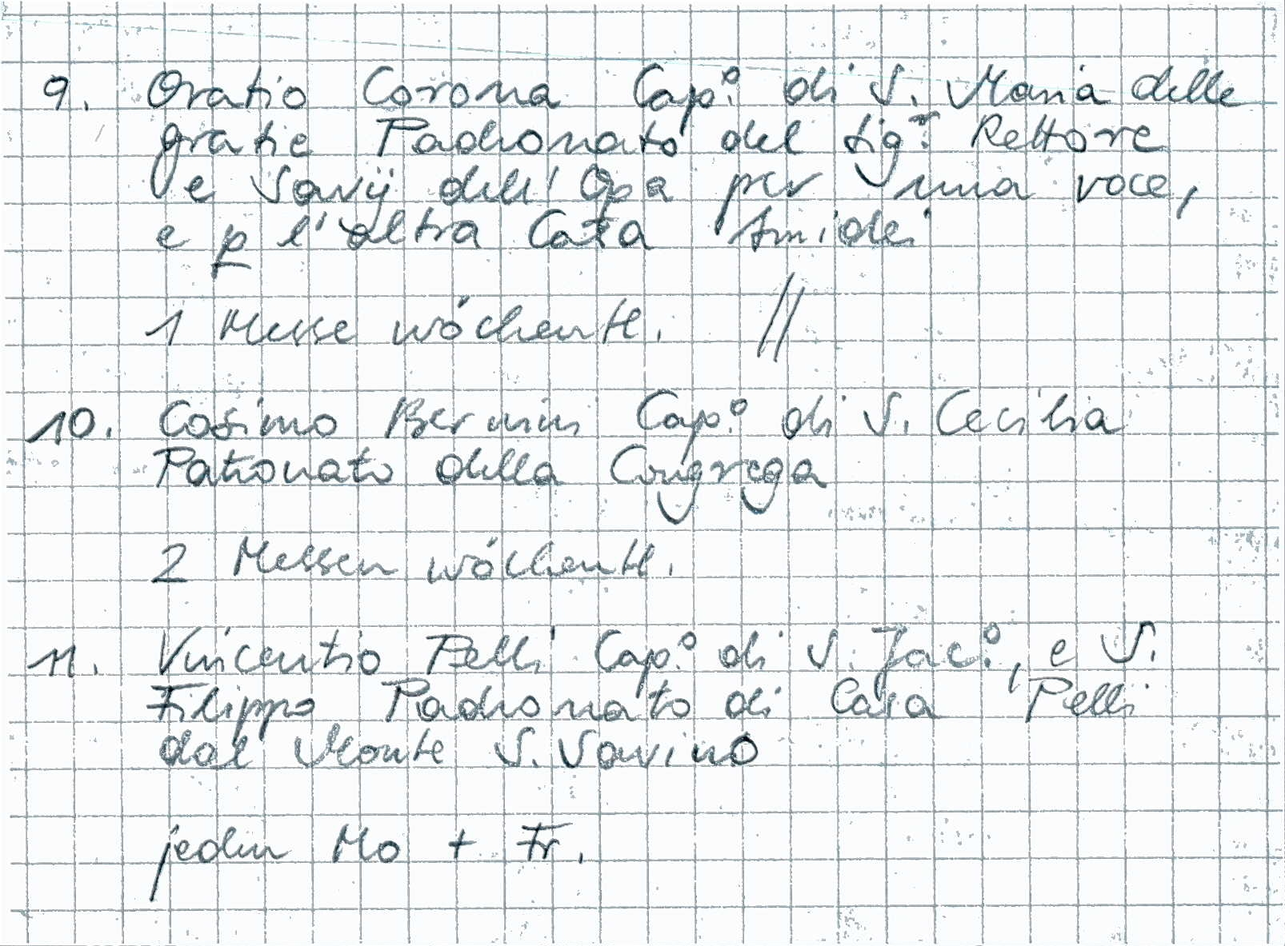 9. Oratio Corona Cap.º di S. Maria delle
gratie Padronato del Sig.r Rettore
e Savij dell' Opa per una voce,
e p l'altra Casa Amidei
1 Messe wöchentl. //
10. Cosimo Bernini Cap.º di S. Cecilia
Patronato della Congrega
2 Messen wöchentl.
11. Vincentio Pelli Cap.º di S. Jac.º, e S.
Filippo Padronato di Casa Pelli
dal Monte S. Savino
jeden Mo + Fr.